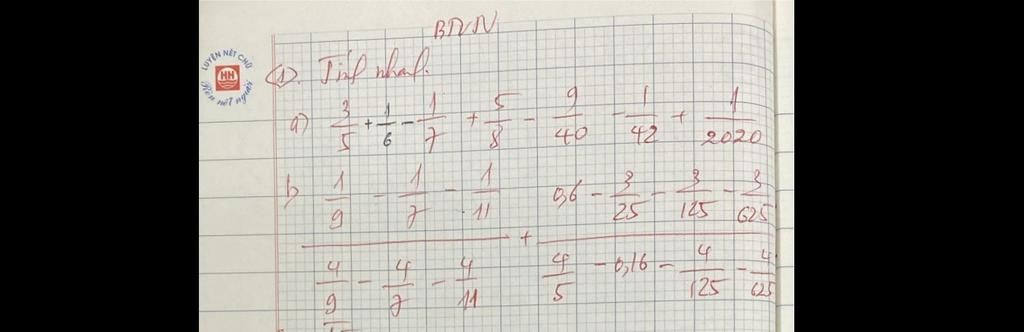 BTVN
LUYỆN NÉT CHỮ
HH
Rèn nết người
①. Tính nhanh.
a) 3/5 + 1/6 - 1/7 + 5/8 - 9/40 - 1/42 + 1/2020
b, 1/9 - 1/7 - 1/11   0,6 - 3/25 - 3/125 - 3/625
+
4/9 - 4/7 - 4/11   4/5 - 0,16 - 4/125 - 4/625